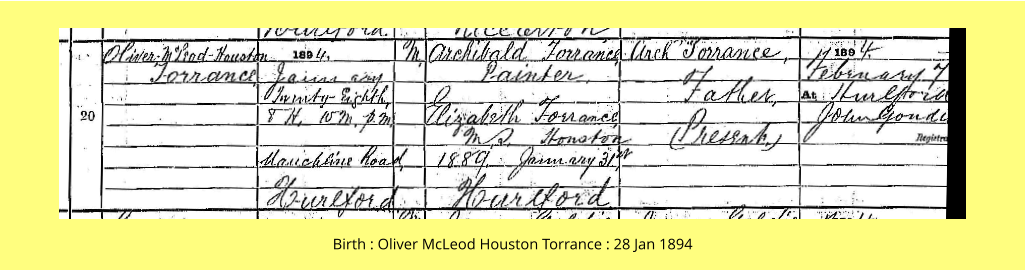 Hurlford.
20
Oliver McLeod Houston
Torrance
1894.
January
Twenty Eighth,
8 H. 10 M. p.m.
Mauchline Road
Hurlford
M.
Archibald Torrance
Painter
Elizabeth Torrance
M.S. Houston
1889. January 31st
Hurlford
Arch Torrance
Father
(Present)
1894
February 7
At Hurlford
John
Registra
Birth : Oliver McLeod Houston Torrance : 28 Jan 1894